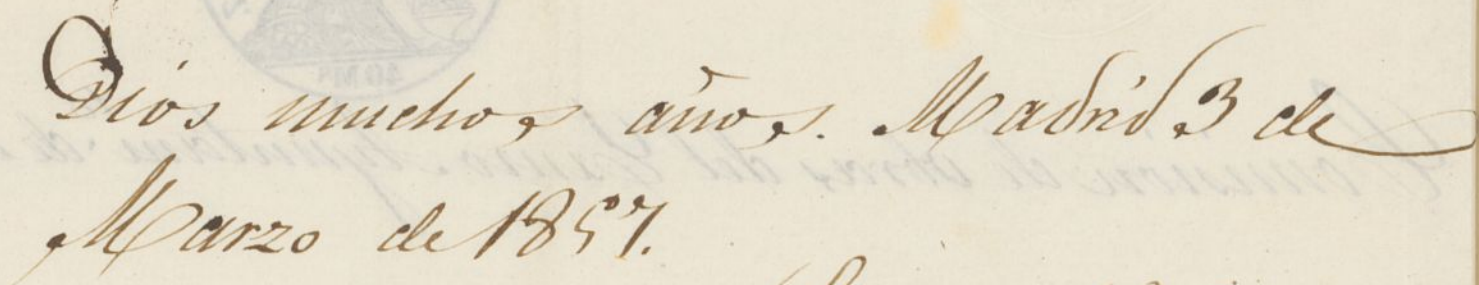 Dios muchos años. Madrid 3 de
Marzo de 1857.